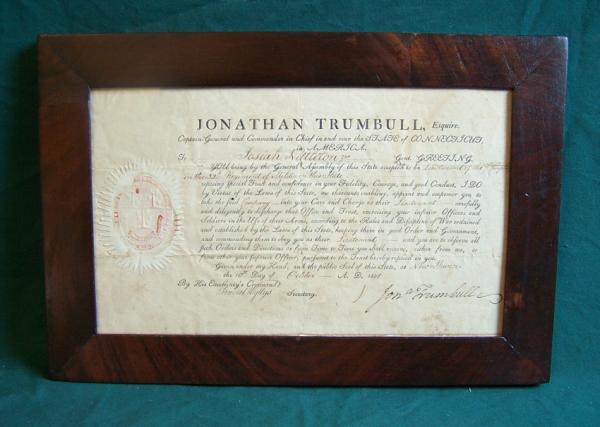 JONATHAN TRUMBULL, Esquire,
Captain-General and Commander in Chief in and over the STATE of CONNECTICUT,
in AMERICA.
To Josiah Gent. GREETING.
YOU being by the General Assembly of this State accepted to be Lieutenant of the
in the Regiment of Militia in this State
reposing special Trust and Confidence in your Fidelity, Courage, and good Conduct, I DO
by Virtue of the Laws of this State, me thereunto enabling, appoint and empower you to
take the said Company into your Care and Charge as their Lieutenant carefully
and diligently to discharge that Office and Trust, exercising your inferior Officers and
Soldiers in the Use of their Arms, according to the Rules and Discipline of War ordained
and established by the Laws of this State, keeping them in good Order and Government,
and commanding them to obey you as their Lieutenant and you to observe all
such Orders and Directions as from Time to Time you shall receive, either from me, or
from other your superior Officer, pursuant to the Trust hereby reposed in you.
Given under my Hand, and the public Seal of this State, at New Haven
the Day of October A. D.
By His Excellency's Command,
Secretary. Jonth Trumbull